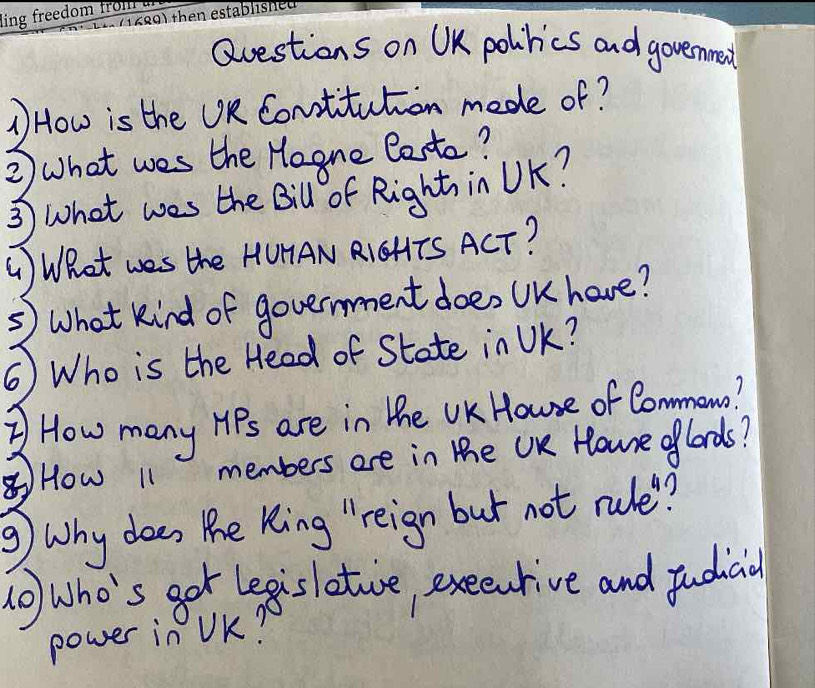 ling freedom from
(1689) then established
Questions on UK politics and government
1) How is the UK Constitution made of?
2) What was the Magna Carta?
3) What was the Bill of Rights in UK?
4) What was the HUMAN RIGHTS ACT?
5) What kind of government does UK have?
6) Who is the Head of State in UK?
7) How many MPs are in the UK House of Commons?
8) How " members are in the UK House of Lords?
9) Why does the King "reign but not rule"?
10) Who's got legislative, executive and judicial
power in UK?